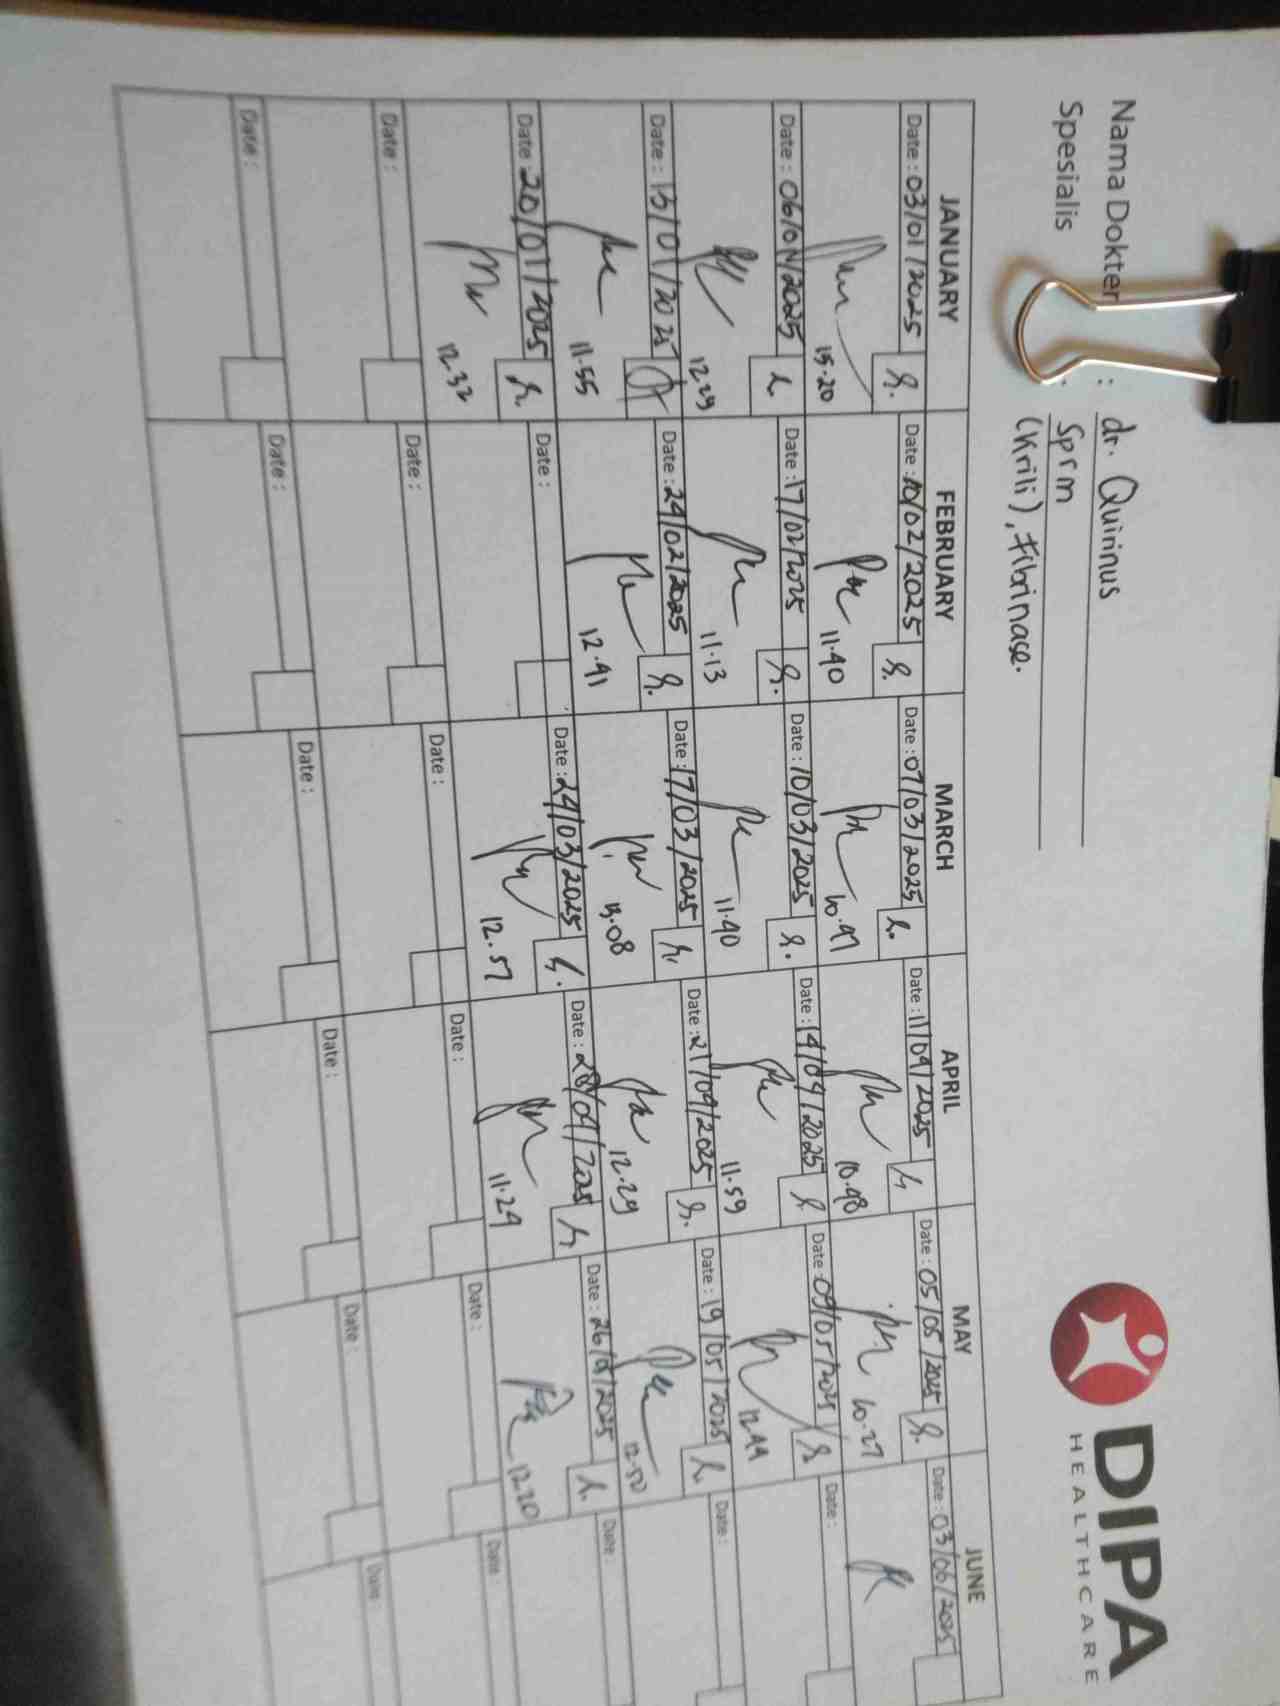 Nama Dokter : dr. Quirinus
Spesialis : Sprm
(Krili), Fibrinase.
DIPA
HEALTHCARE
JANUARY FEBRUARY MARCH APRIL MAY JUNE
Date : 03/01/2025 Date : 10/02/2025 Date : 07/03/2025 Date : 11/04/2025 Date : 05/05/2025 Date : 03/06/2025
15.20 11.40 10.47 10.48 10.27
Date : 06/01/2025 Date : 17/02/2025 Date : 10/03/2025 Date : 14/04/2025 Date : 09/05/2025 Date :
12.29 11.13 11.40 11.59 12.44
Date : 13/01/2025 Date : 24/02/2025 Date : 17/03/2025 Date : 21/04/2025 Date : 19/05/2025 Date :
11.55 12.41 13.08 12.29 12.50
Date : 20/01/2025 Date : Date : 24/03/2025 Date : 28/04/2025 Date : 26/05/2025 Date :
12.32 12.57 11.24 12.20
Date : Date : Date : Date : Date : Date :
Date : Date : Date : Date : Date : Date :